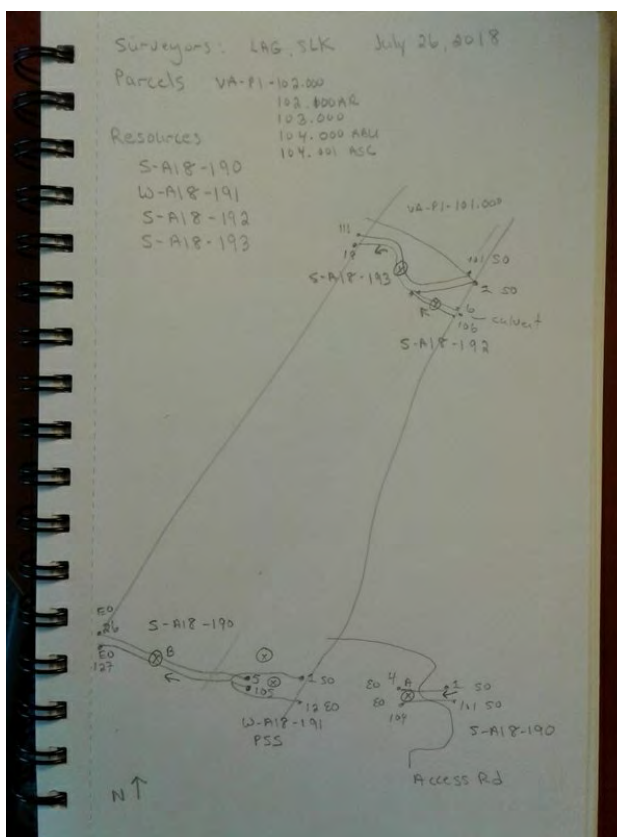 Surveyors: LAG, SLK July 26, 2018
Parcels VA-P1-102.000
102.000AR
103.000
104.000 ABU
104.001 ASC
Resources
S-A18-190
W-A18-191
S-A18-192
S-A18-193
VA-P1-101.000
111
18
S-A18-193
101 SO
SO
6
culvert
106
S-A18-192
EO
26
S-A18-190
B
EO
127
5
105
1 SO
12 EO
W-A18-191
PSS
EO 4 A
1 SO
EO
101 SO
104
S-A18-190
Access Rd
N